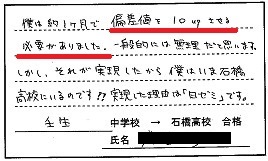 僕は約1ヶ月で偏差値を10upさせる
必要がありました。一般的には無理だと思います。
しかし、それが実現したから僕はいま石橋
高校にいるのです!!実現した理由は「白ゼミ」です。
壬生 中学校 → 石橋高校 合格
氏名